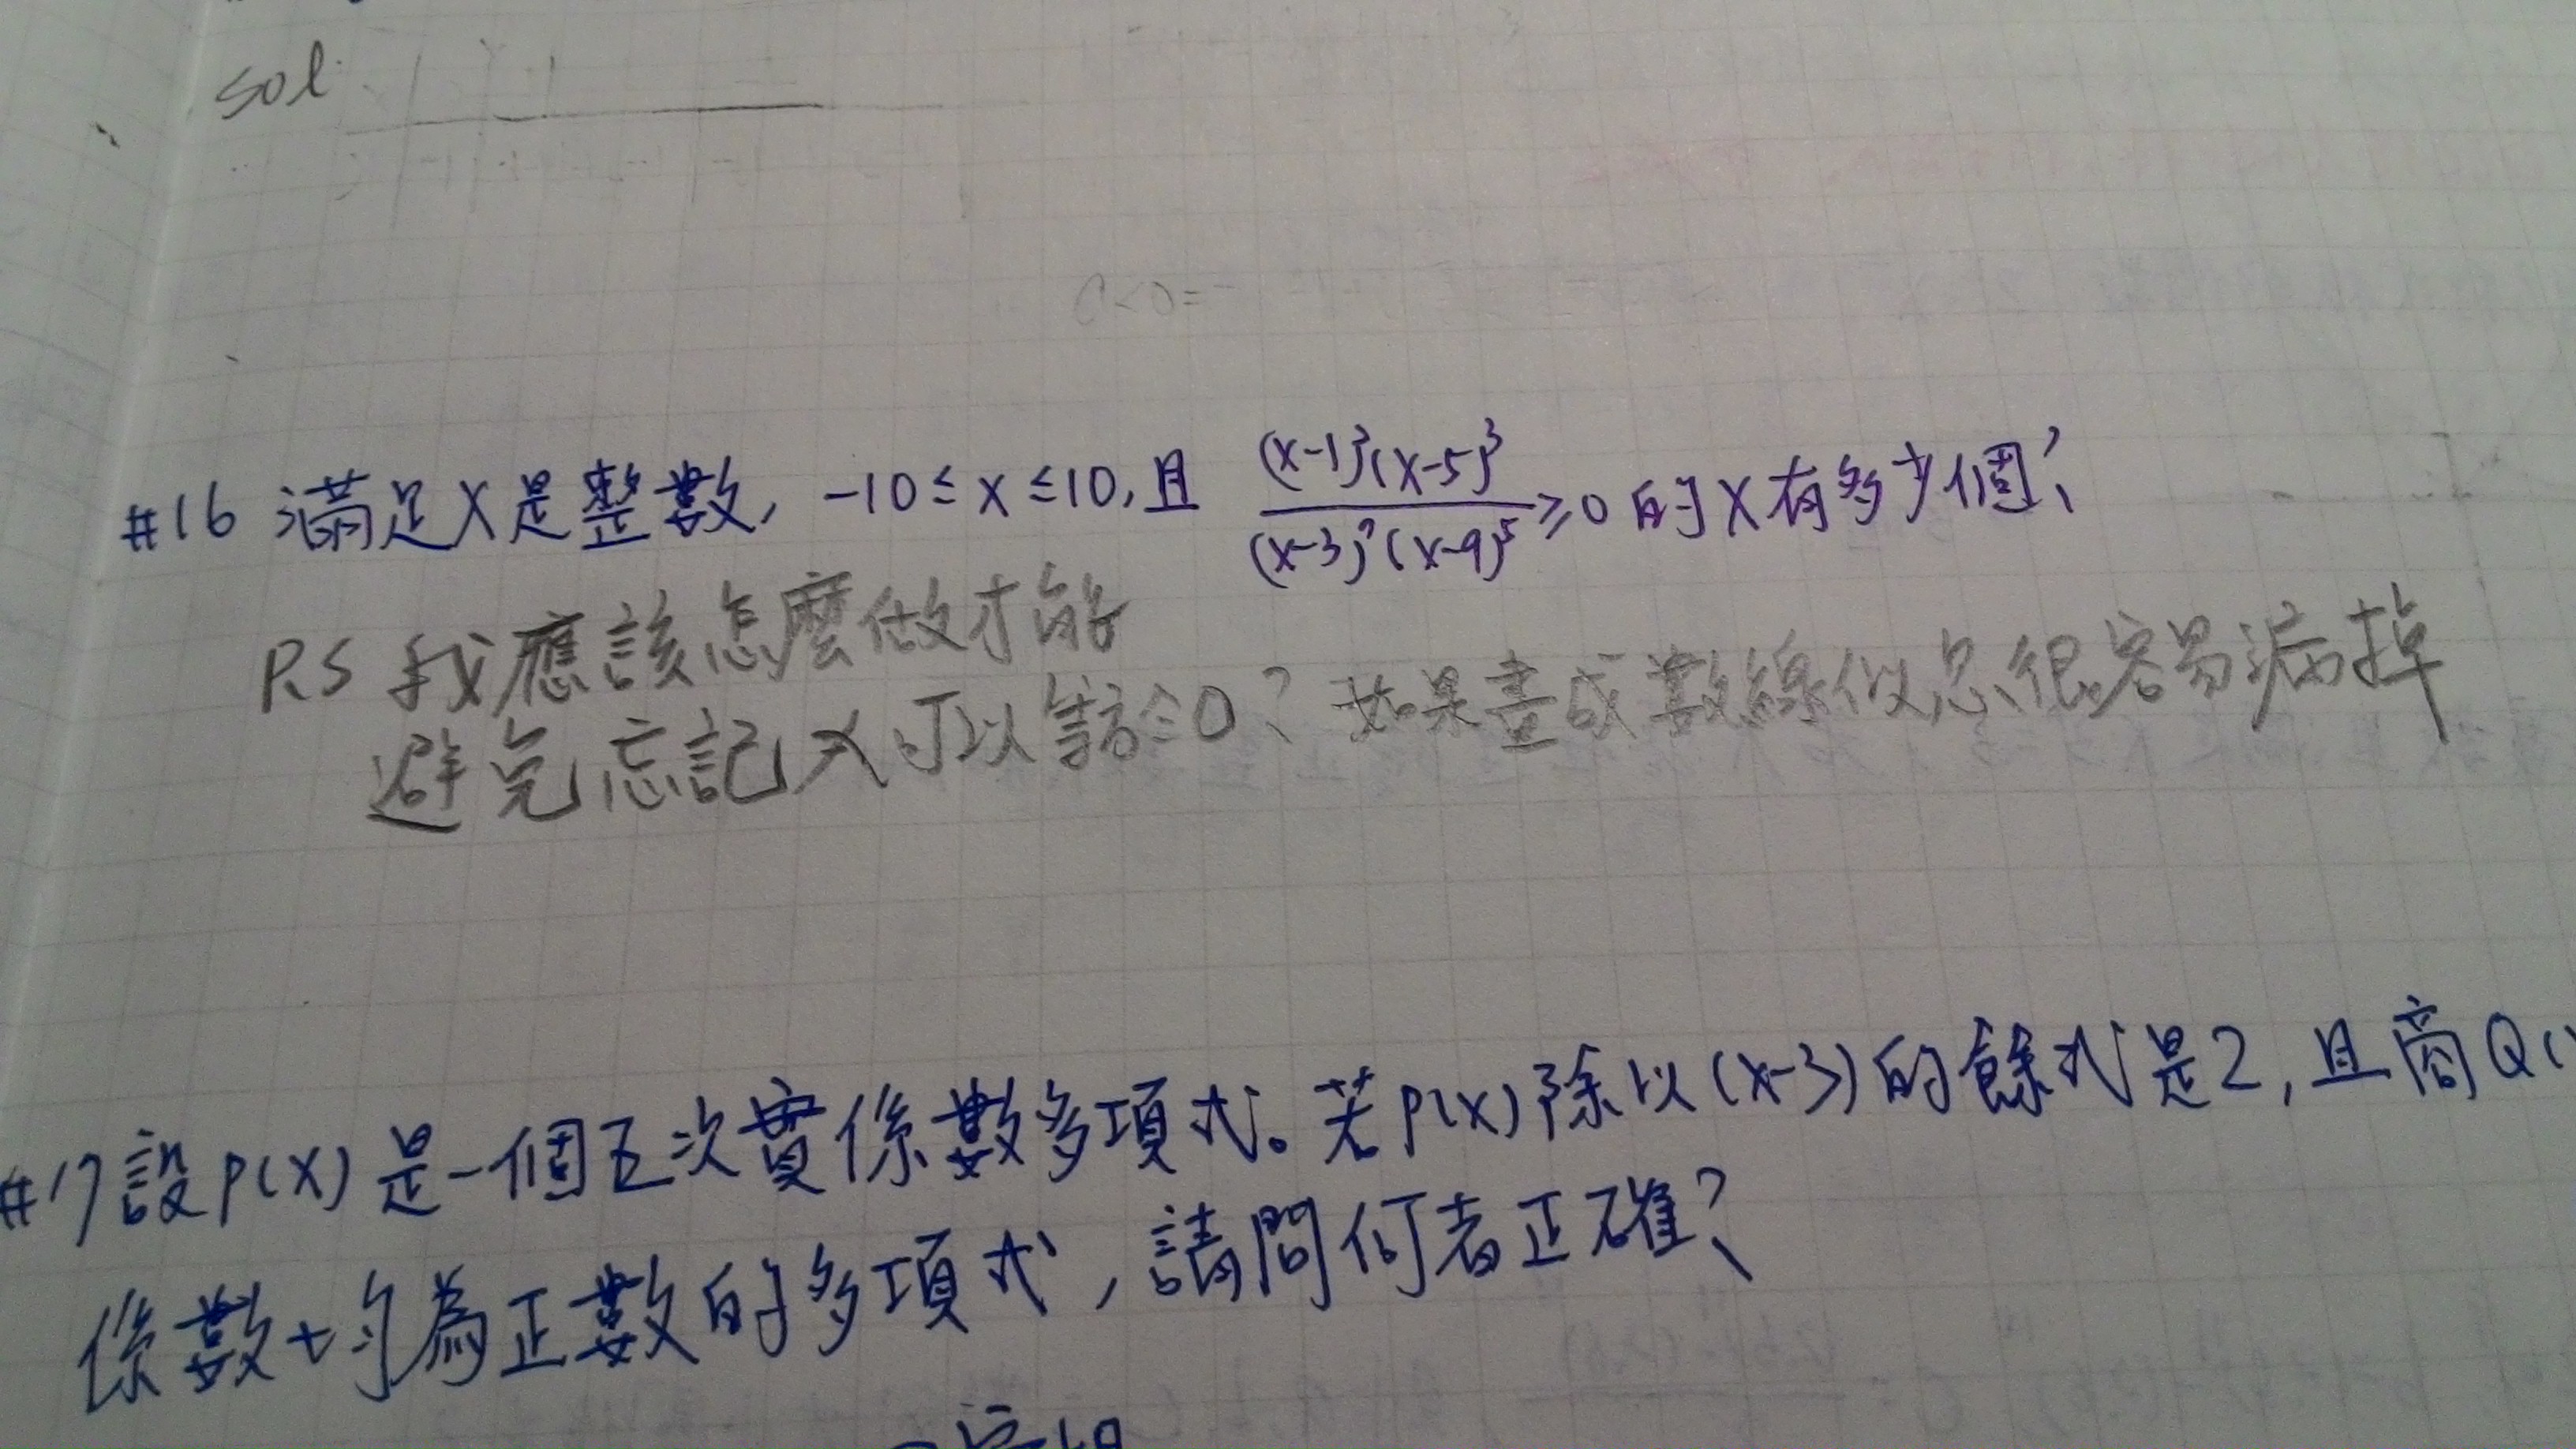 sol:
#16 滿足X是整數, -10≤x≤10,且 (x-1)³(x-5)³/(x-3)²(x-9)⁵ ≥0 的X有多少個?
P.S 我應該怎麼做才能
避免忘記X可以等於0? 如果畫成數線似忽很容易漏掉
#17 設P(X)是一個五次實係數多項式。若P(X)除以(x-3)的餘式是2,且商Q(
係數均為正數的多項式,請問何者正確?